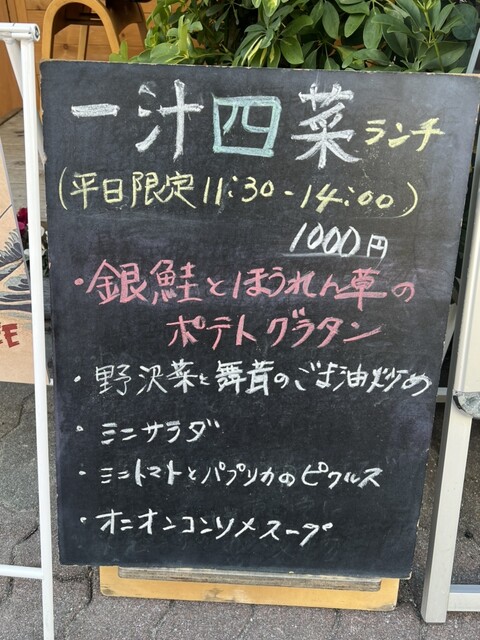 一汁四菜ランチ
(平日限定 11:30-14:00)
1000円
・銀鮭とほうれん草の
ポテトグラタン
・野沢菜と舞茸のごま油炒め
・ミニサラダ
・ミニトマトとパプリカのピクルス
・オニオンコンソメスープ